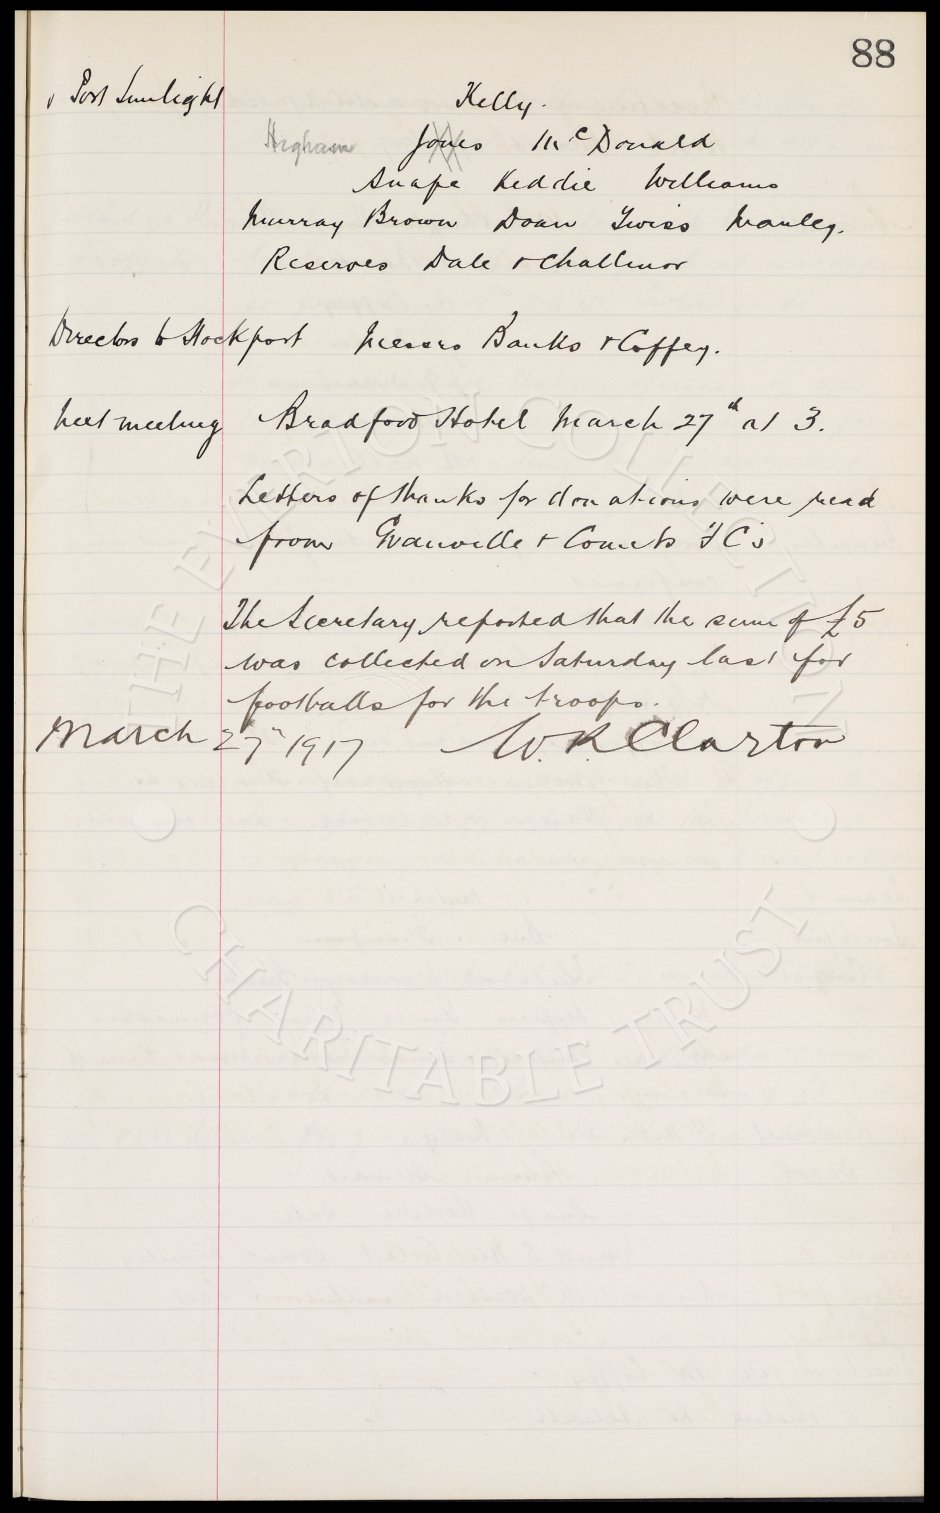 88
v Port Sunlight Kelly.
Higham Jones McDonald
Snape Keddie Williams
Murray Brown Doan Twiss Manley.
Reserves Dale & Challinor
Directors to Stockport Messrs Banks & Coffey.
Next meeting Bradford Hotel March 27th at 3.
Letters of thanks for donations were read
from Granville & Comets F C's
The Secretary reported that the sum of £5
was collected on Saturday last for
footballs for the troops.
March 27th 1917 W. R. Clayton
THE EVERTON COLLECTION
CHARITABLE TRUST